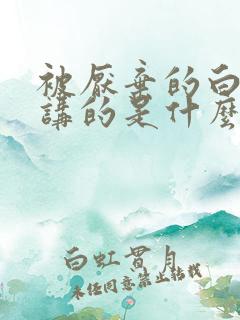 被厭棄的白
講的是什麼
白虹貫月
未經同意禁止轉載